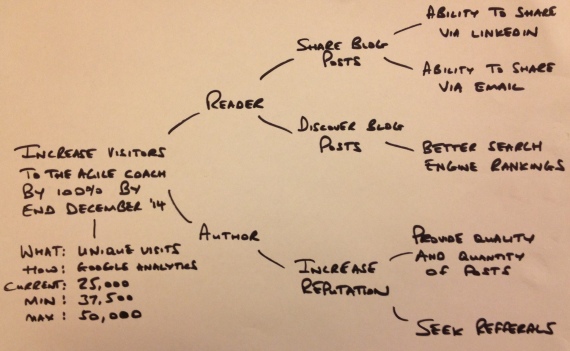 INCREASE VISITORS
TO THE AGILE COACH
BY 100% BY
END DECEMBER '14
WHAT: UNIQUE VISITS
HOW: GOOGLE ANALYTICS
CURRENT: 25,000
MIN: 37,500
MAX: 50,000
READER
SHARE BLOG
POSTS
ABILITY TO SHARE
VIA LINKEDIN
ABILITY TO SHARE
VIA EMAIL
DISCOVER BLOG
POSTS
BETTER SEARCH
ENGINE RANKINGS
AUTHOR
INCREASE
REPUTATION
PROVIDE QUALITY
AND QUANTITY
OF POSTS
SEEK REFFERALS